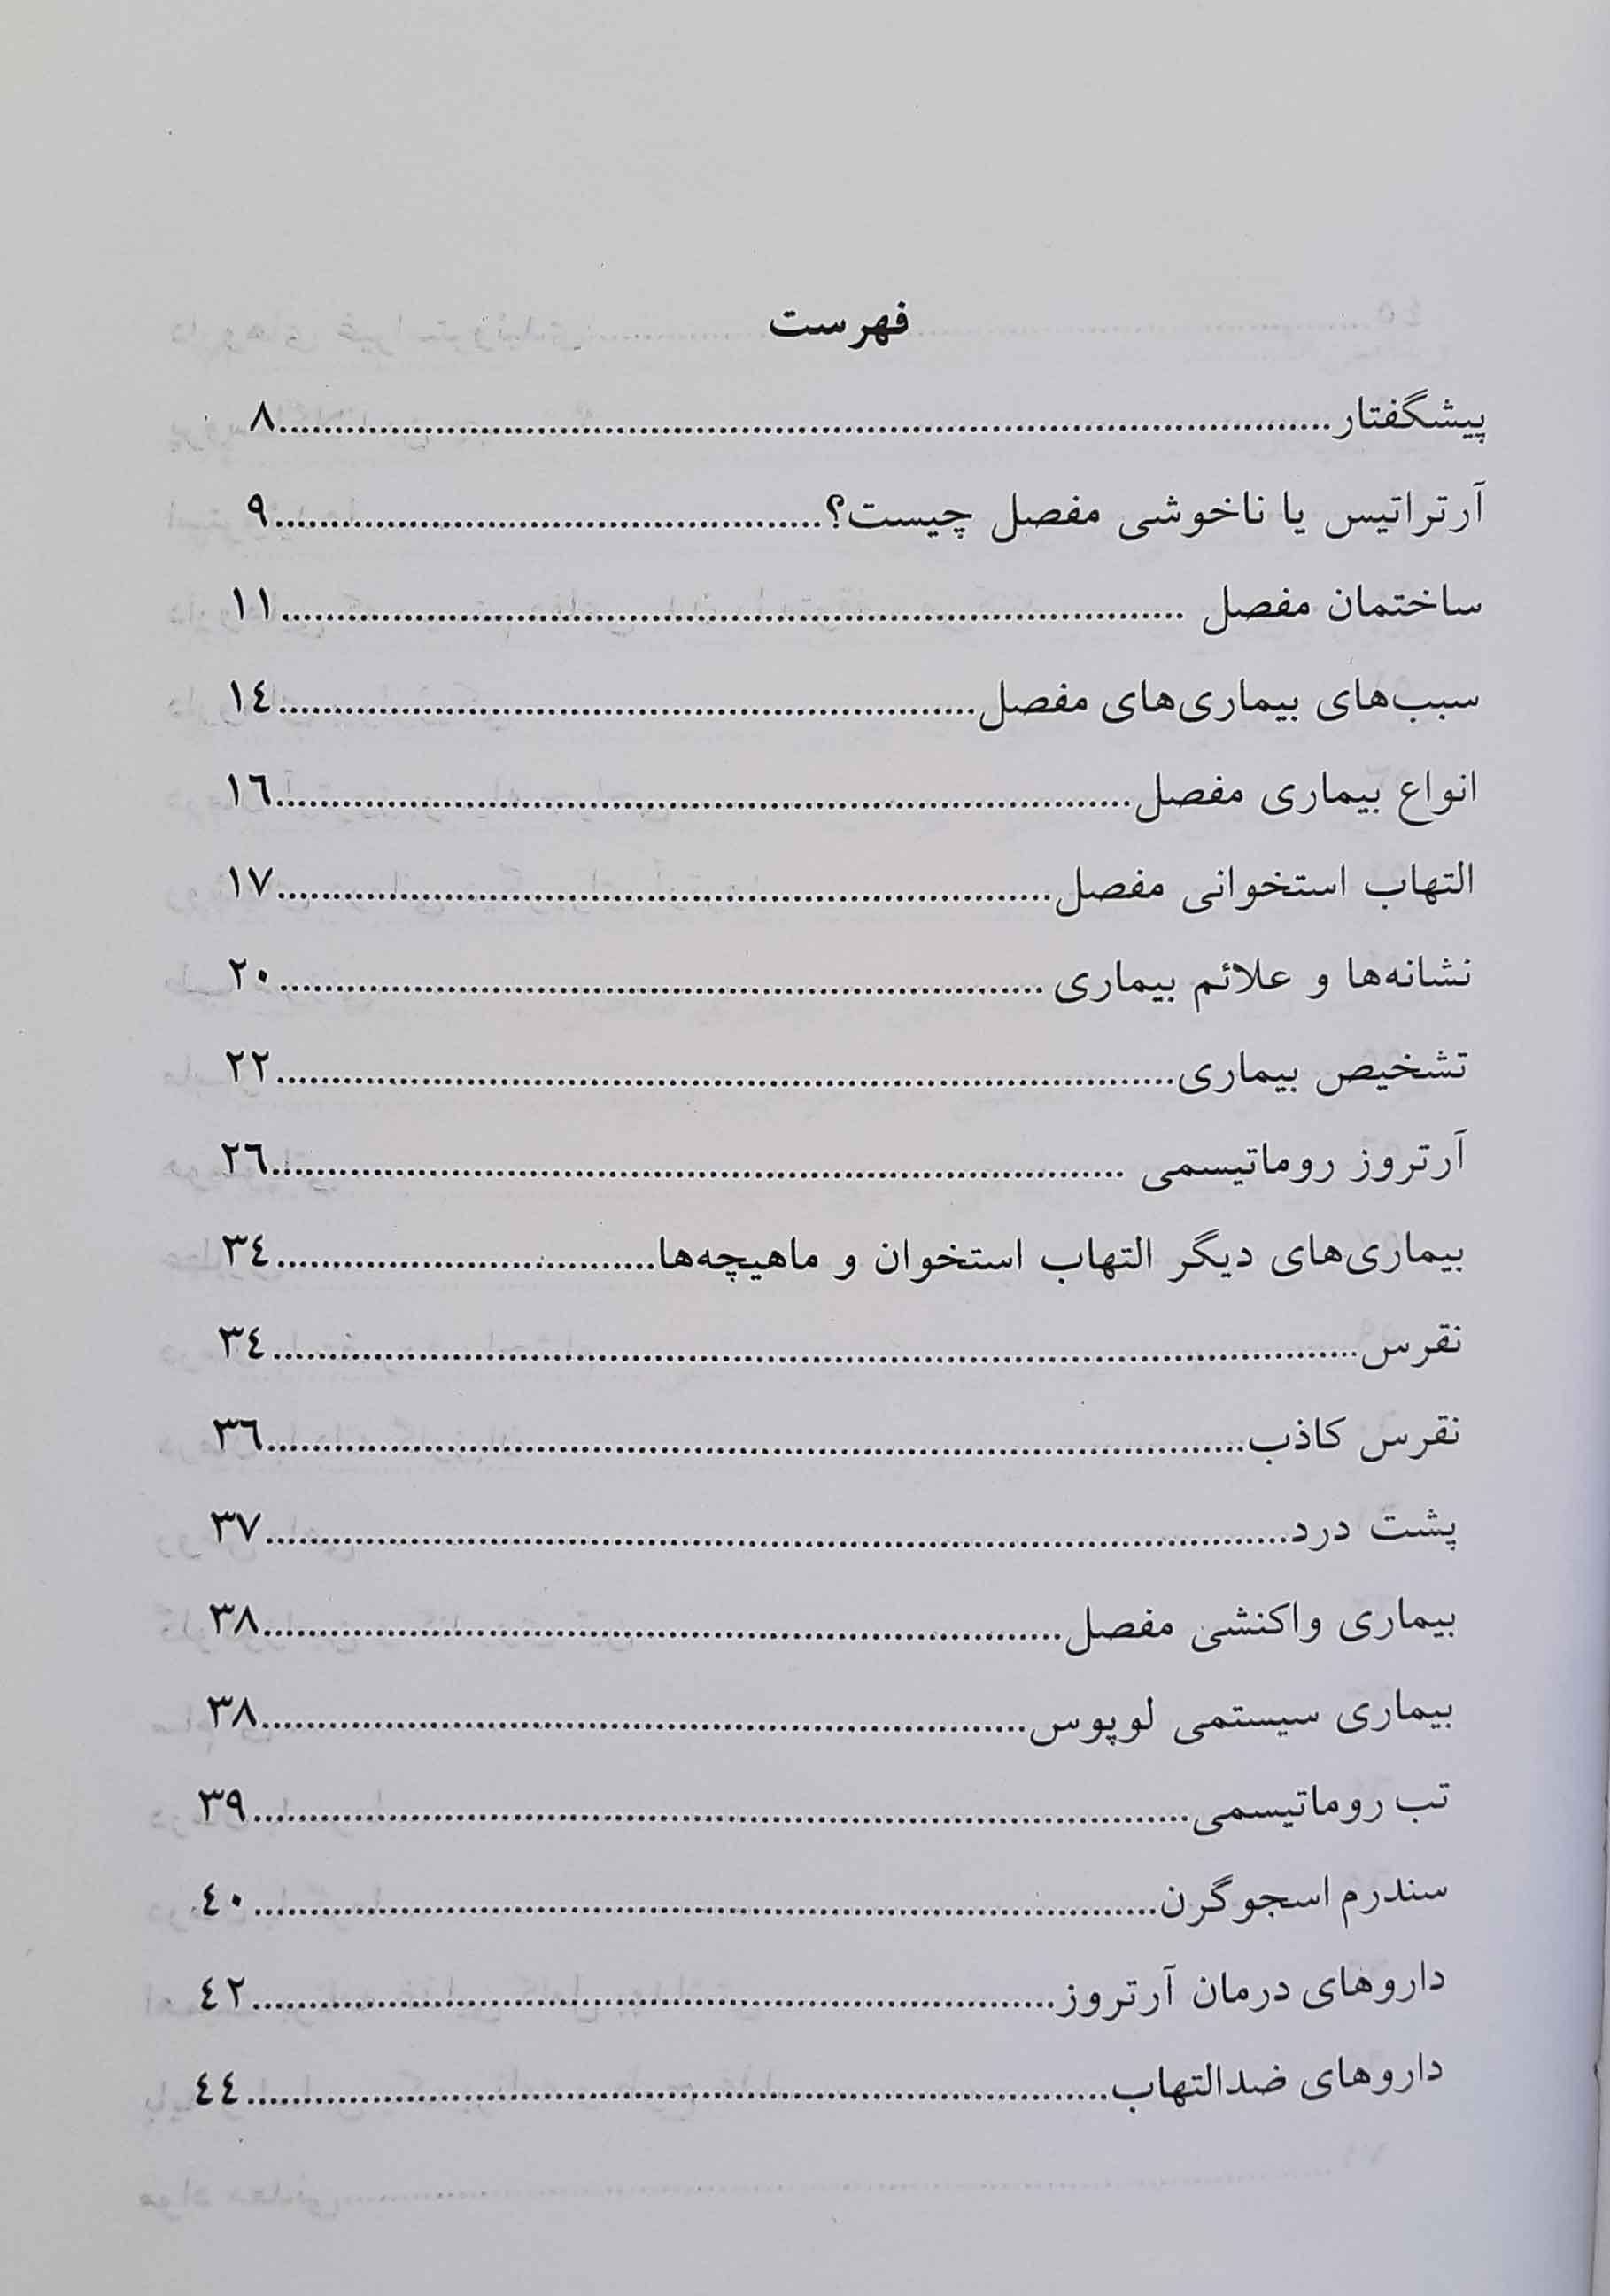 فهرست
پیشگفتار........................................٨
آرتراتیس یا ناخوشی مفصل چیست؟........................................٩
ساختمان مفصل ........................................١١
سبب‌های بیماری‌های مفصل........................................١٤
انواع بیماری مفصل........................................١٦
التهاب استخوانی مفصل........................................١٧
نشانه‌ها و علائم بیماری ........................................٢٠
تشخیص بیماری........................................٢٢
آرتروز روماتیسمی ........................................٢٦
بیماری‌های دیگر التهاب استخوان و ماهیچه‌ها........................................٣٤
نقرس........................................٣٤
نقرس کاذب........................................٣٦
پشت درد........................................٣٧
بیماری واکنشی مفصل........................................٣٨
بیماری سیستمی لوپوس........................................٣٨
تب روماتیسمی........................................٣٩
سندرم اسجوگرن........................................٤٠
داروهای درمان آرتروز........................................٤٢
داروهای ضدالتهاب........................................٤٤